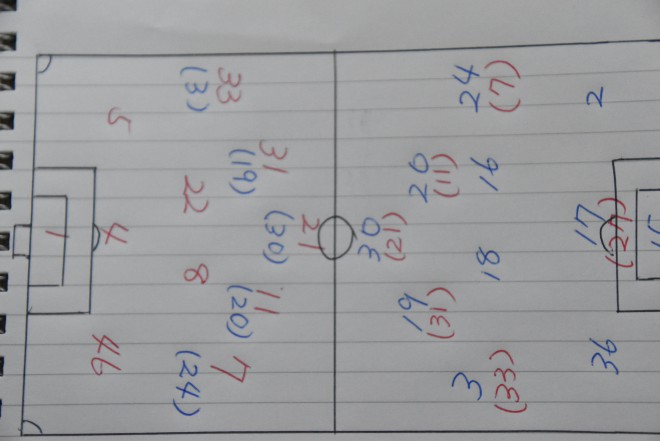 33
(3)
5
31
(19)
22
21
(30)
4
1
8
11
(20)
7
(24)
46
24
(7)
2
20
(11)
16
30
(21)
17
(27)
18
19
(31)
3
(33)
36